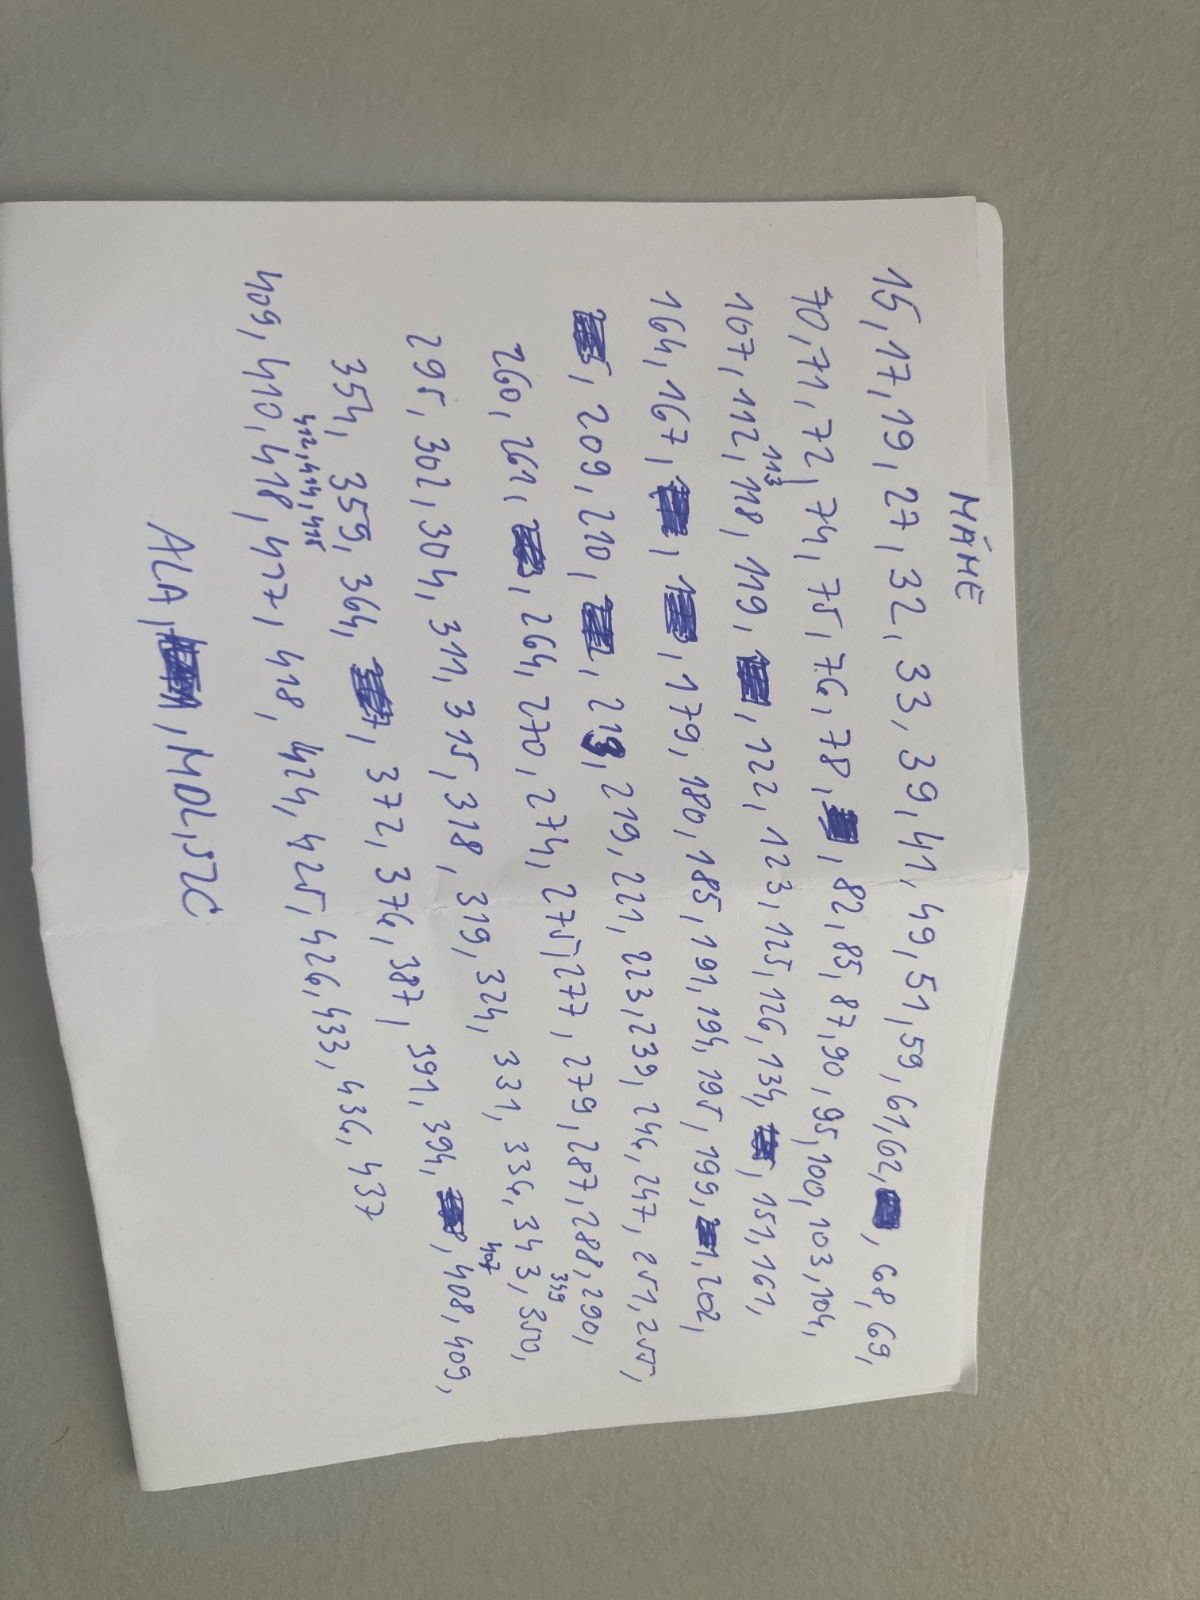 MÁME
15, 17, 19, 27, 32, 33, 39, 41, 49, 51, 59, 61, 62, 68, 69,
70, 71, 72, 74, 75, 76, 78, 82, 85, 87, 90, 95, 100, 103, 104,
113
107, 112, 118, 119, 122, 123, 125, 126, 134, 151, 161,
164, 167, 179, 180, 185, 191, 194, 195, 199, 202,
209, 210, 219, 221, 223, 239, 246, 247, 251, 255,
260, 261, 264, 270, 274, 275, 277, 279, 287, 288, 290,
349
295, 302, 304, 311, 315, 318, 319, 324, 331, 336, 343, 350,
407
354, 359, 364, 372, 376, 387, 391, 394, 408, 409,
412, 414, 415
409, 410, 418, 417, 418, 424, 425, 426, 433, 436, 437
ALA, MOL, SZC